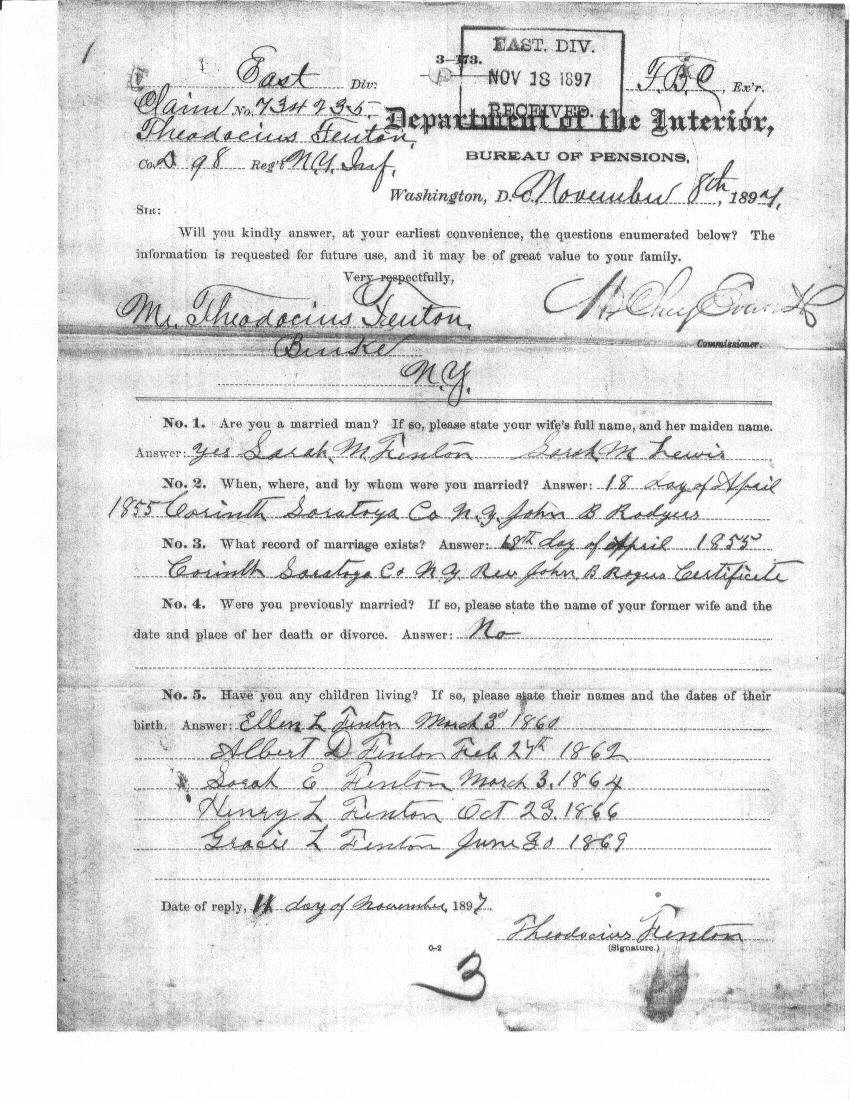 East Div.
3—173.
EAST. DIV.
NOV 18 1897
RECEIVED.
F.B.C., Ex'r.
Claim No. 734235
Theodocius Fenton,
Co. D 98 Reg't N.Y. Inf.
Department of the Interior,
BUREAU OF PENSIONS,
Washington, D. C. November 8th, 1897.
SIR:
Will you kindly answer, at your earliest convenience, the questions enumerated below? The
information is requested for future use, and it may be of great value to your family.
Very respectfully,
Mr. Theodocius Fenton,
Commissioner.
Burke
N.Y.
No. 1. Are you a married man? If so, please state your wife's full name, and her maiden name.
Answer: yes Sarah M Fenton Sarah M Lewis
No. 2. When, where, and by whom were you married? Answer: 18 day of April
1855 Corinth Saratoga Co N.Y. John B Rodgers
No. 3. What record of marriage exists? Answer: 18th day of April 1855
Corinth Saratoga Co N Y Rev John B Rogers Certificate
No. 4. Were you previously married? If so, please state the name of your former wife and the
date and place of her death or divorce. Answer: No
No. 5. Have you any children living? If so, please state their names and the dates of their
birth. Answer: Ellen L Fenton March 3d 1860
Albert D Fenton Feb 27th 1862
Sarah E Fenton March 3, 1864
Henry L Fenton Oct 23. 1866
Gracie L Fenton June 30 1869
Date of reply, 11 day of November, 1897.
Theodocius Fenton
(Signature.)
0-2
3